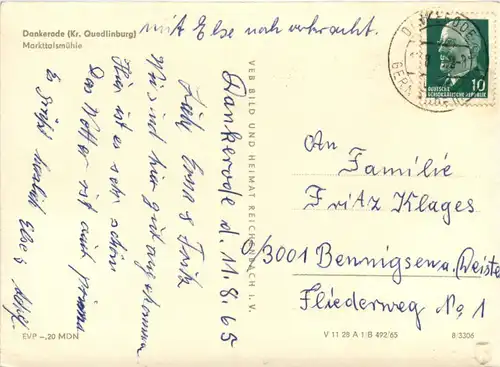 Dankerode (Kr. Quedlinburg)
Markttalsmühle
mit Else noch verbracht.
Dankerode d. 11.8.65
Wir sind hier gut angekommen
Hier ist es sehr schön
Das Wetter ist auch prima
Es grüßt herzlich Else &
VEB BILD UND HEIMAT REICHENBACH I. V.
DANKERODE
10
DEUTSCHE
DEMOKRATISCHE REPUBLIK
An
Familie
Fritz Klages
3001 Bennigsen a. Deister
Fliederweg No 1
EVP –,20 MDN
V 11 28 A 1 B 492/65
8/3306